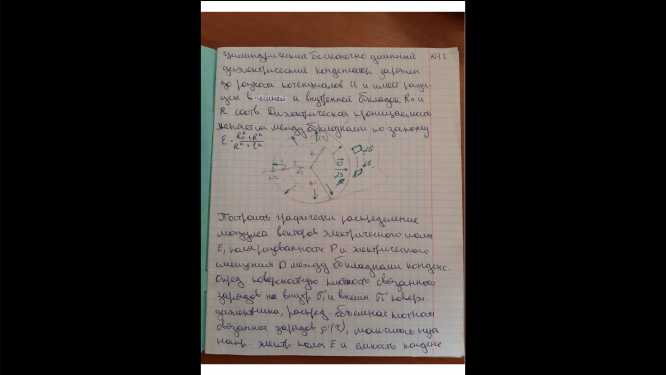 Цилиндрический бесконечно длинный N1.2
диэлектрический конденсатор заряжен
до разности потенциалов U и имеет ради-
усы внешней и внутренней обкладок R₀ и
R соотв. Диэлектрическая проницаемость
меняется между обкладками по закону
Построить графически распределение
модулей векторов электрического поля
E, поляризованности P и электрического
смещения D между обкладками конденс.
Опред поверхностную плотность связанного
зарядов на внутр и внешн поверх.
диэлектрика, распред. объемная плотная
связанны зарядов ρ'(r),
напр. электр. поля E и емкость конденс.